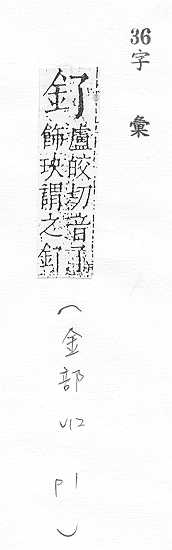 36字彙
釕
盧皎切音了
飾玦謂之釕
(金部 V12 P1)